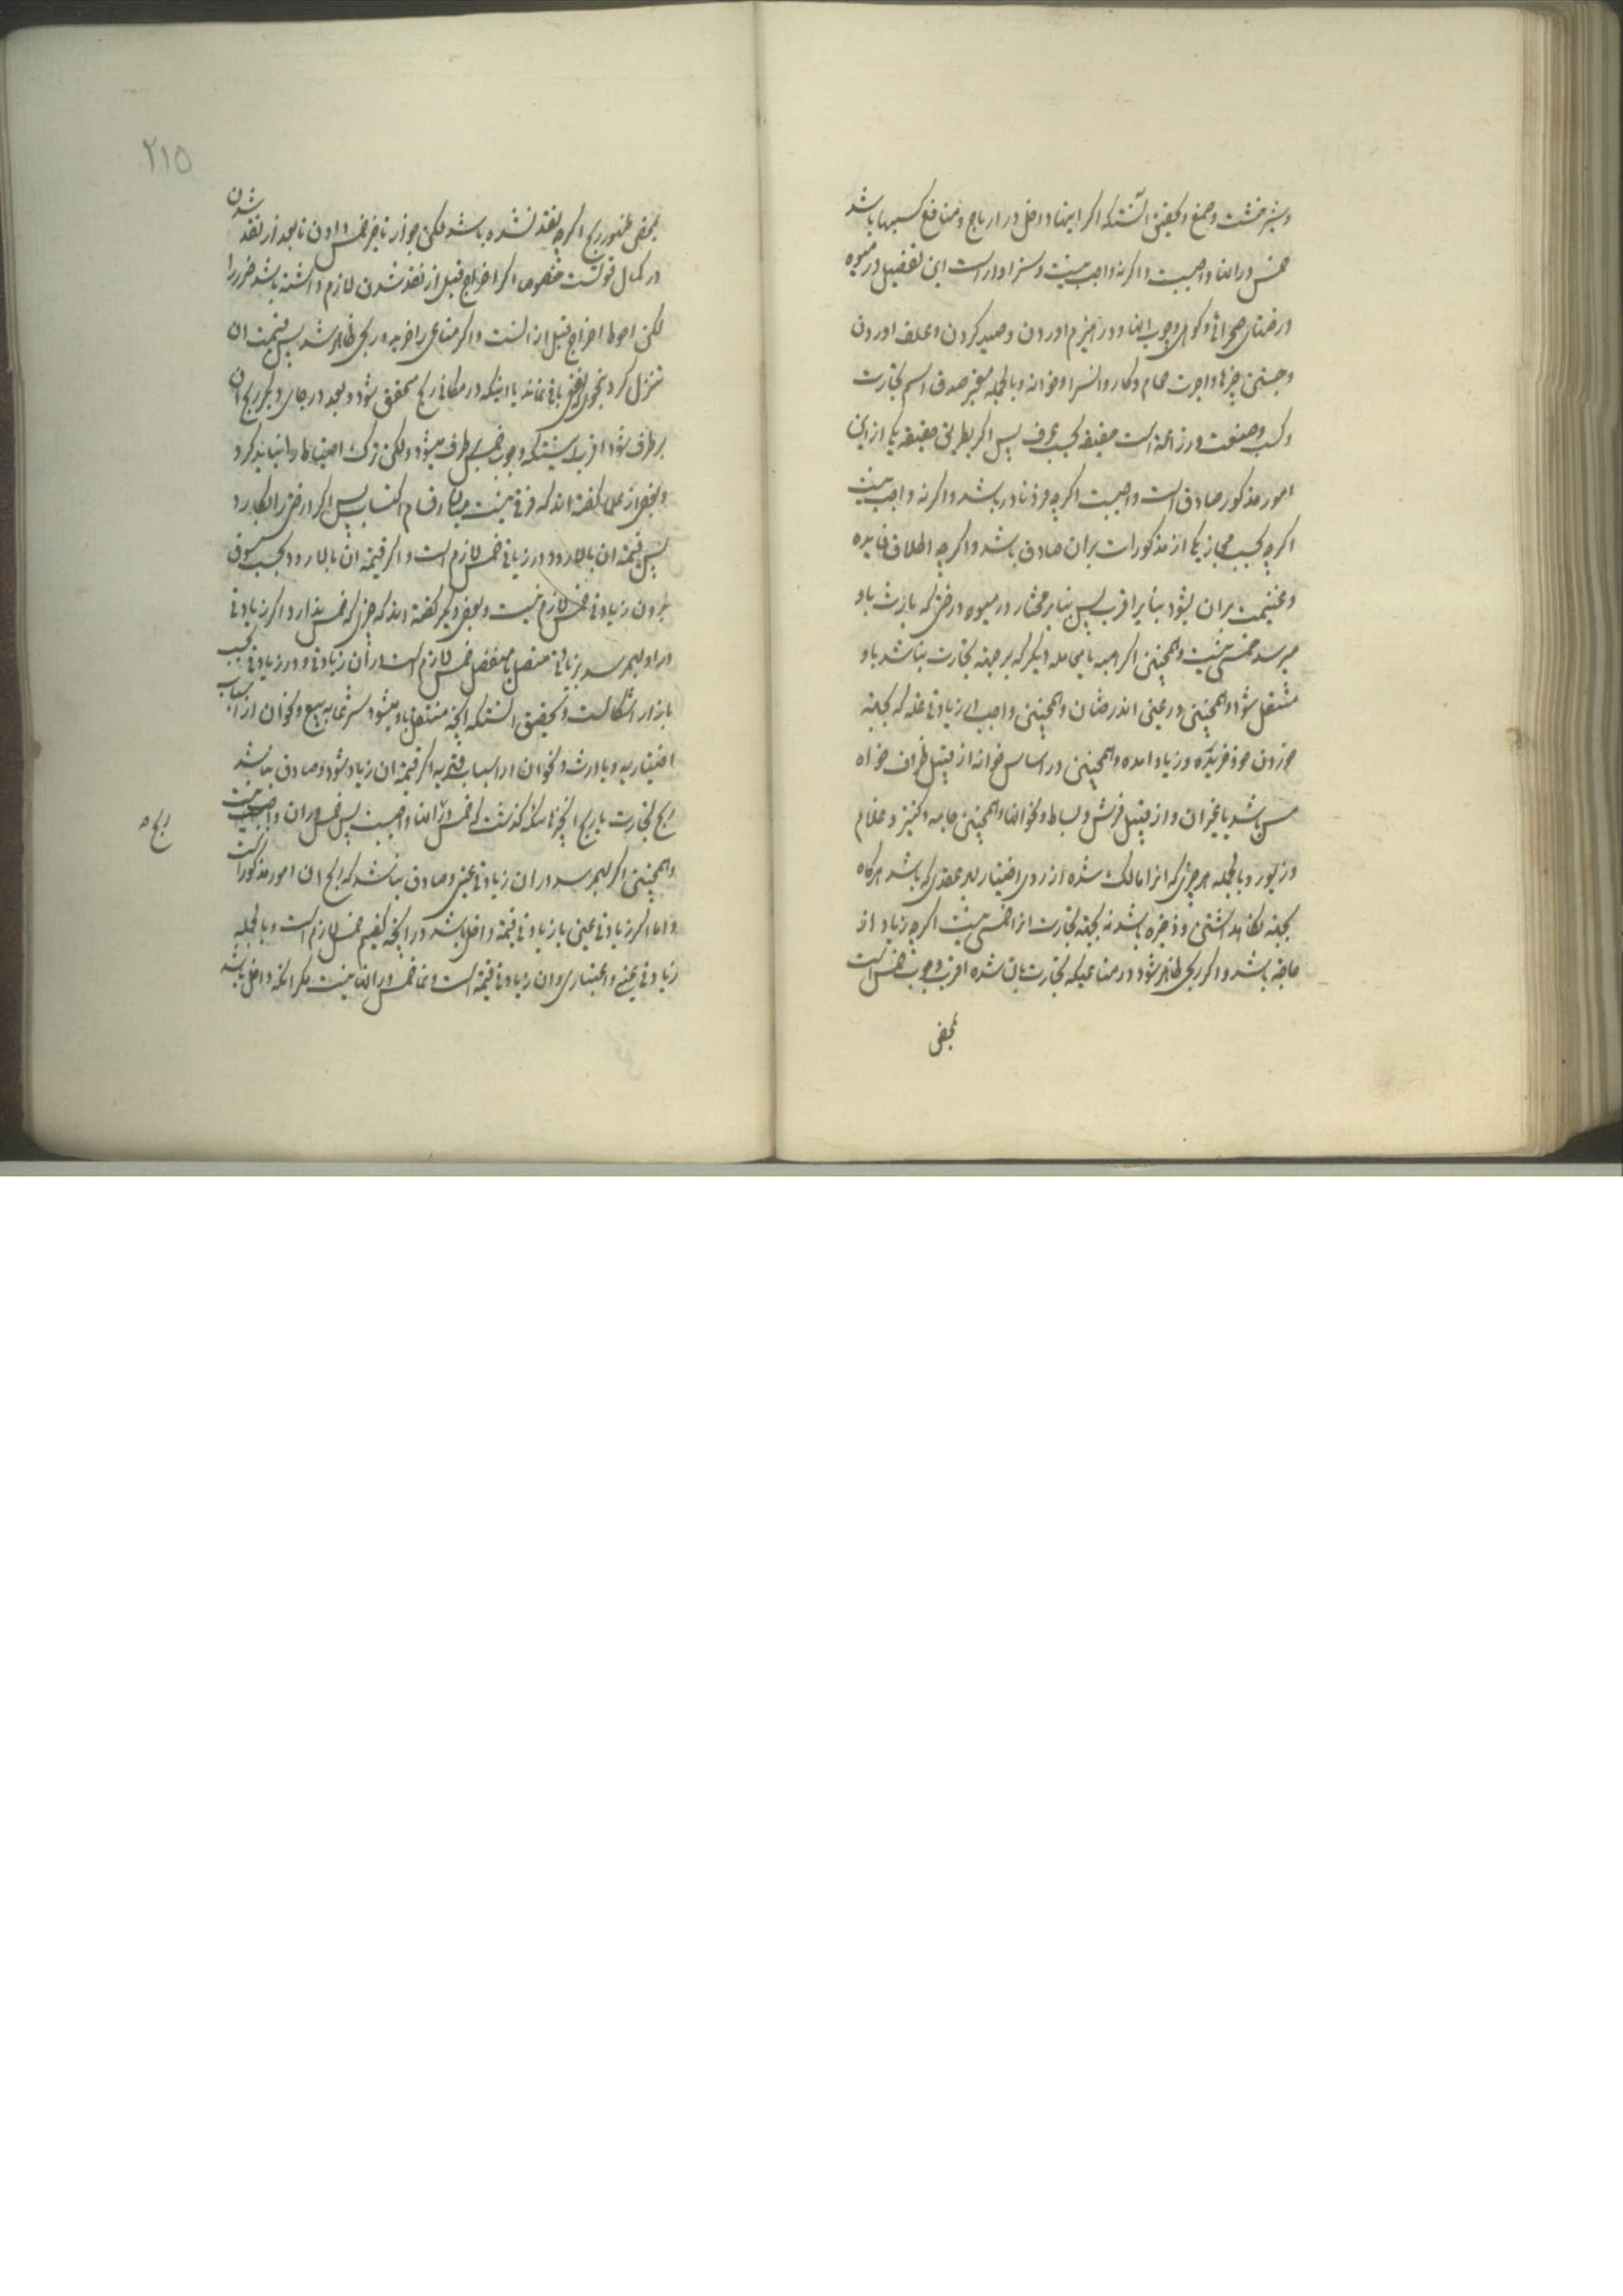 وشیرخشت وصمغ وتحقیق آنستکه اکر اینها داخل در ارباح ومنافع کسبها باشد
خمس در انها واجبست واکرنه واجب نیست وسزاوار است این تفصیل در میوه
درختهای صحرائی وکوهی وجوب انها ودر هیزم اوردن وصید کردن وعلف اوردن
وجستن چیزها واجرت حمام وکاروانسرا وخانه وبالجمله معتبر صدق اسم تجارت
وکسب وصنعت وزراعة است حقیقة بحسب عرف پس اکر بطریق حقیقة یکی از این
امور مذکور صادق است واجبست اکرچه فرد نادر باشد واکرنه واجب نیست
اکرچه بحسب مجاز یکی از مذکورات بران صادق باشد واکرچه اطلاق فایده
وغنیمت بران بشود بنابر اقرب پس بنابر مختار در میوه درختی که بارث باو
میرسد خمس نیست وهمچنین اکر بهبه یا معامله دیکر که بر جهة تجارت نباشد باو
منتقل شود وهمچنین در عینی اندرختان وهمچنین واجب ای زیادتی غله که بجهة
خوردن خود خریده وزیاد امده وهمچنین در اساس خانه از قبیل ظروف خواه
مس باشد یا غیر ان واز قبیل فرش وبساط ونحو انها وهمچنین جامه وکنیز وغلام
وزیور وبالجمله هر چیزی که انرا مالک شده از روی اختیار بهر عقدی که باشد هرکاه
بجهة نکاهداشتن وذخیره باشد نه بجهة تجارت انرا خمس نیست اکرچه زیاد از
حاجة باشد واکر ربحی ظاهر شود در متاعیکه تجارت بان شده اقرب وجوب خمس است
بمحض
۲۱۵
بمحض ظهور ربح اکرچه نقد نشده باشد لکن جواز تاخیر خمس دادن تا بعد از نقد شدن
در کمال قوتست خصوصا اکر اخراج قبل از نقد شدن لازم داشته باشد ضرر را
لکن احوط اخراج قبل از انست واکر متاعی را خرید وربحی ظاهر شد پس قیمت ان
تنزل کرد بنحویکه نفعی باقی نماند یا اینکه در مکانی ربح متحقق شود وبعد در جای دیکر ربح ان
برطرف شود اقرب اینستکه وجوب خمس برطرف میشود ولکن ترک احتیاط را نباید کرد
وبعضی از علما کفته اند که فرقی نیست میان اقسام اکتساب پس اکر درختی را بکارد
پس قیمة ان بالا رود در زیادتی خمس لازم است واکر قیمة ان بالا رود بحسب سوق
بدون زیادتی خمس لازم نیست وبعضی دیکر کفته اند که چیزی که خمس ندارد اکر زیادتی
در او بهمرسد بزیادتی متصل یا منفصل خمس لازم است در ان زیادتی ودر زیادتی بحسب
بازار اشکالست وتحقیق انستکه انچه منتقل باو میشود شرعا به بیع ونحو ان از اسباب
اختیاریه ویا بارث ونحو ان از اسباب قهریه اکر قیمة ان زیاد شود وصادق نباشد
ربح تجارت یا ربح انچیزهائیکه کذشت که خمس در انها واجبست پس خمس در ان واجب نیست
ربح
وهمچنین اکر بهمرسد در ان زیادتی عینی وصادق نباشد که ربح ان امور مذکور است
واما اکر زیادتی عینی یا زیادتی قیمة داخل باشد در انچه کفتیم خمس لازم است وبالجمله
زیادتی عینی واعتباری وان زیادتی قیمة است ونما خمس در انها نیست مکر انکه داخل باشد